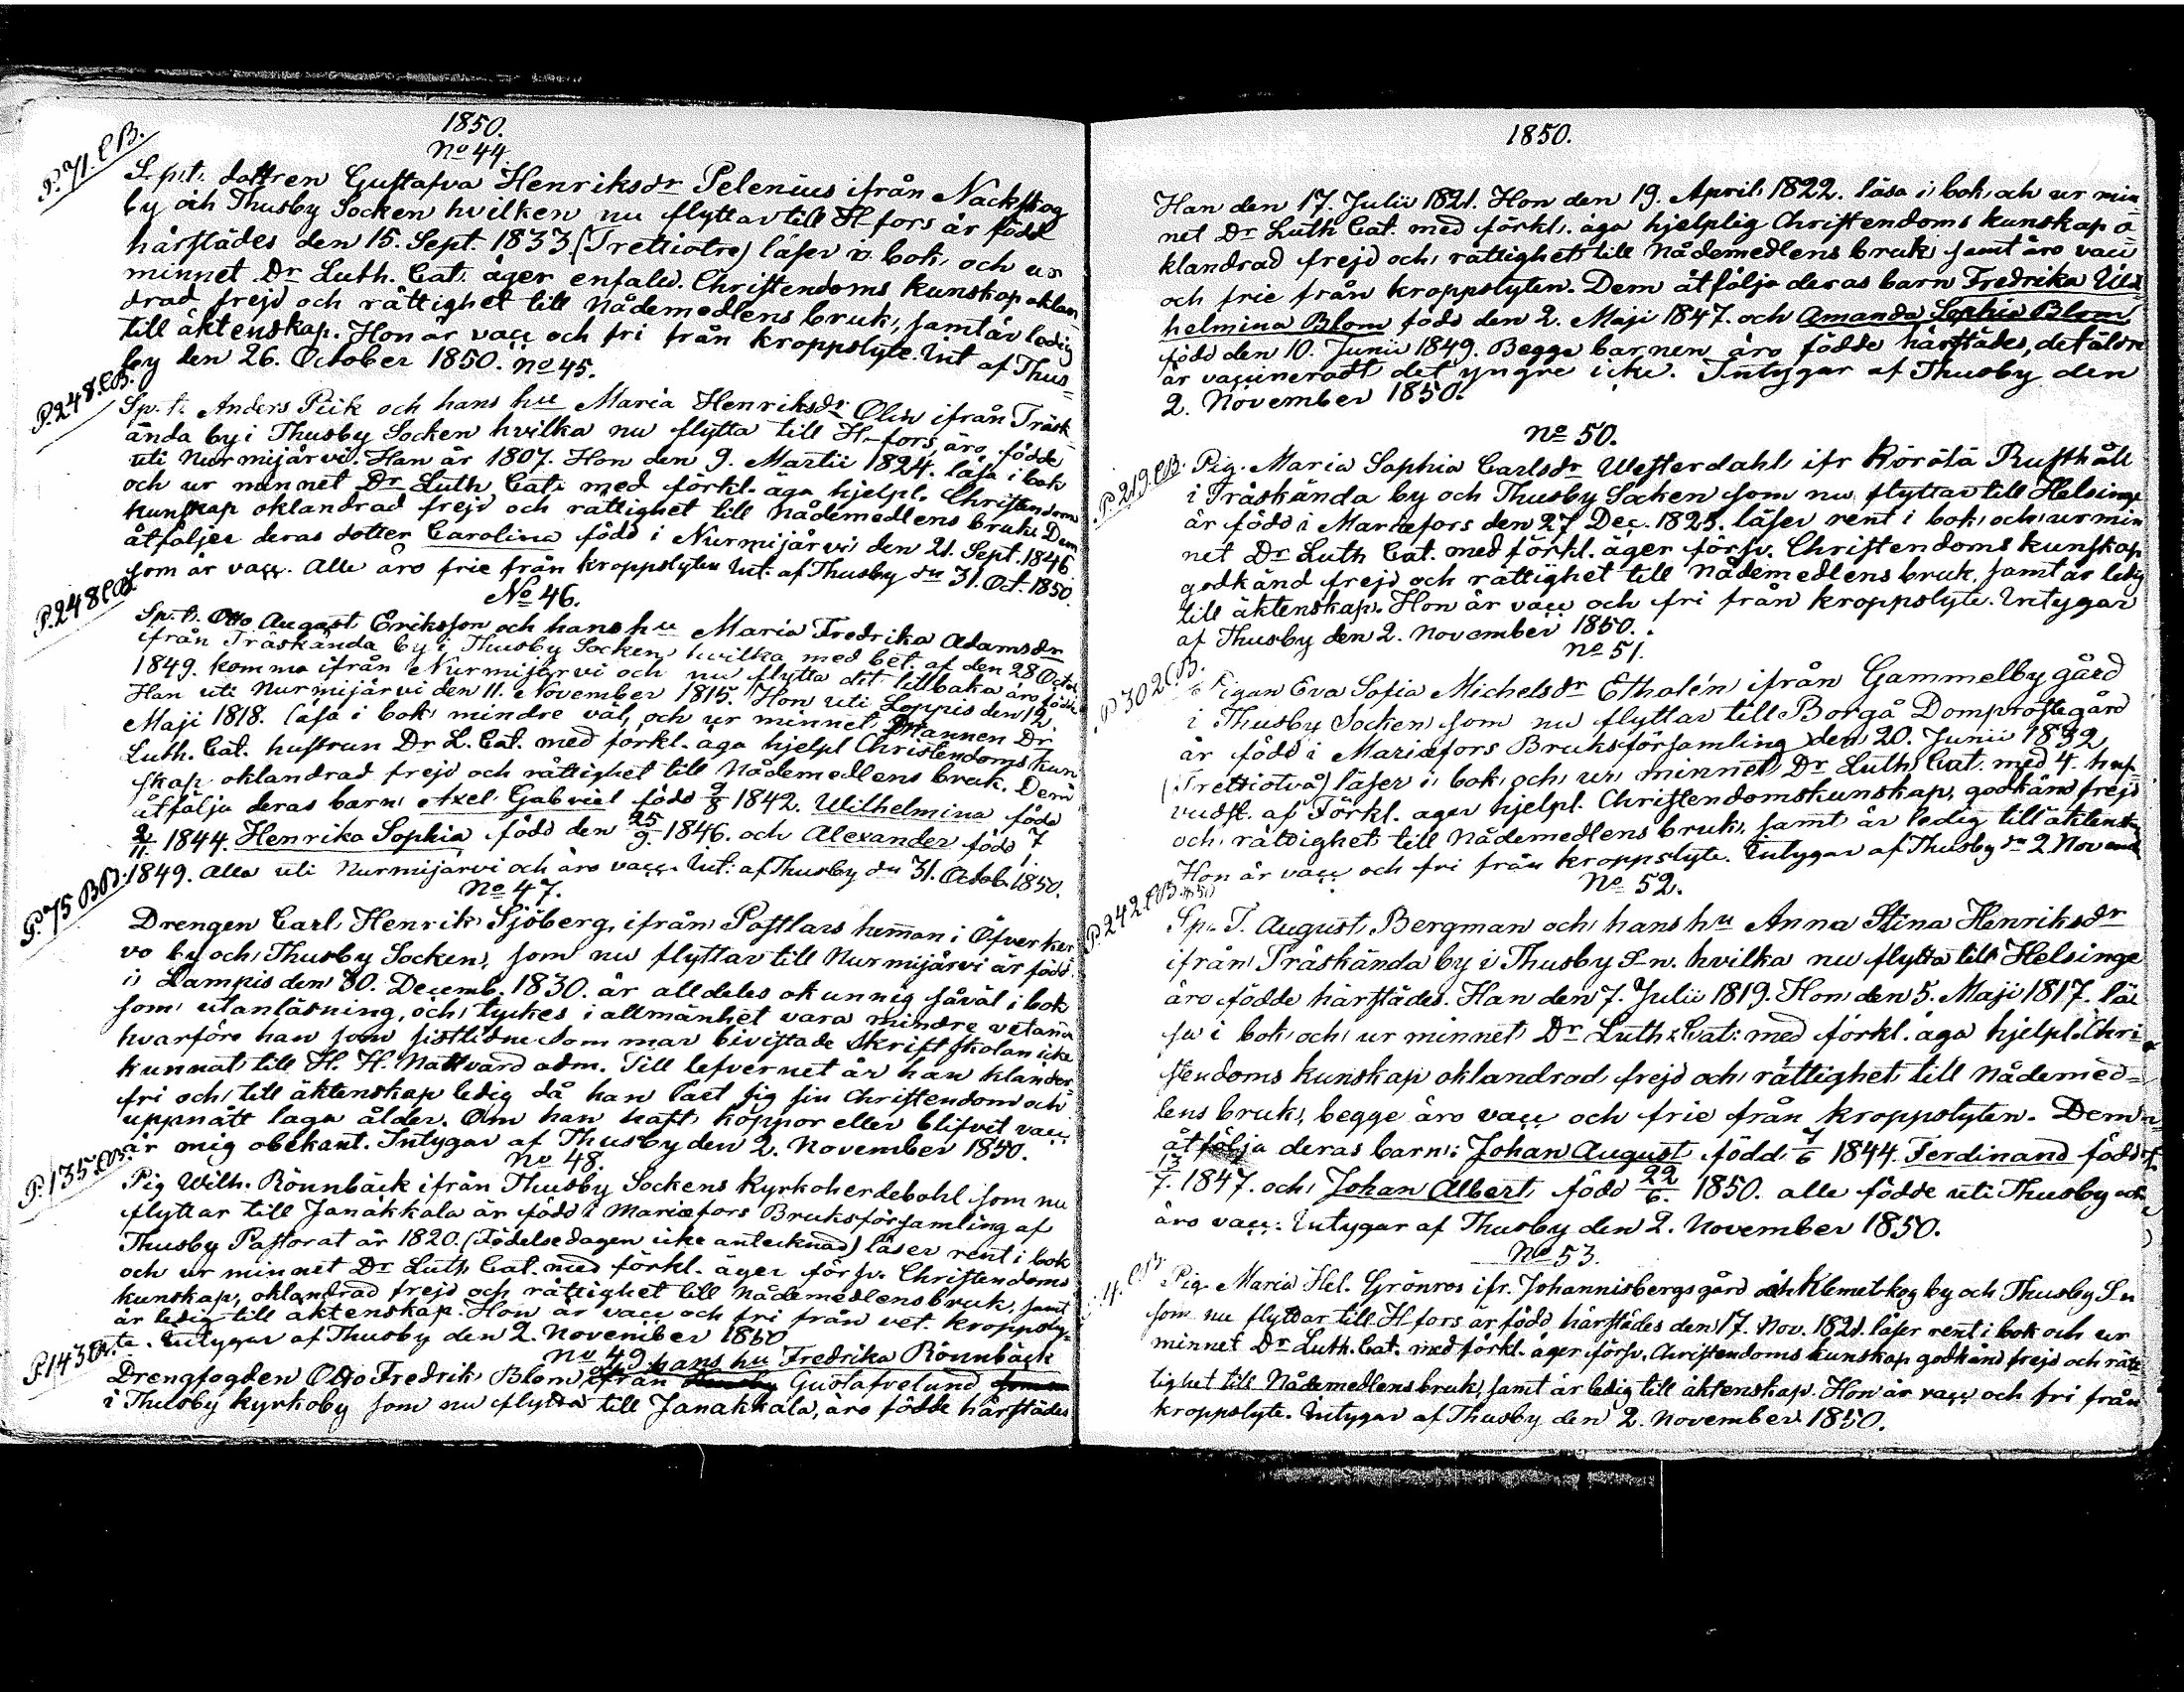 1850.
No 44.
P. 71. CB.
Sp.t. dottren Gustafva Henriksdr Pelenius ifrån Nackskog
by och Thusby Socken hvilken nu flyttar till H-fors är född
härstädes den 15. Sept. 1833. (Trettiotre) läser i bok och ur
minnet Dr. Luth. Cat. äger enfald. Christendoms kunskap oklan-
drad frejd och rättighet till Nådemedlens bruk, samt är ledig
till äktenskap. Hon är vacc och fri från kroppslyte. Int af Thus=
by den 26. October 1850.
No 45.
P. 248. CB.
Sp. t. Anders Piik och hans hu Maria Henriksdr Olin ifrån Träsk-
ända by i Thusby Socken hvilka nu flytta till H-fors, äro födde
uti Nurmijärvi. Han år 1807. Hon den 9. Martii 1824. läsa i bok
och ur minnet Dr Luth Cat. med förkl. äga hjelpl. Christendoms
kunskap oklandrad frejd och rättighet till Nådemedlens bruk. Dem
åtföljer deras dotter Carolina född i Nurmijärvi den 21. Sept. 1846
som är vacc. Alle äro frie från kroppslyten Int: af Thusby dn 31. Oct. 1850.
No 46.
P. 248 CB.
Sp. t. Otto August Eriksson och hans hu Maria Fredrika Adamsdr
ifrån Träskända by i Thusby Socken, hvilka med bet. af den 28 Octob
1849. komma ifrån Nurmijärvi och nu flytta dit tillbaka äro födde
Han uti Nurmijärvi den 11. November 1815. Hon uti Loppis den 12
Maji 1818. läsa i bok mindre väl, och ur minnet, Mannen Dr
Luth. Cat. hustrun Dr L. Cat. med förkl. äga hjelpl Christendoms kun
skap oklandrad frejd och rättighet till Nådemedlens bruk. Dem
åtfölja deras barn: Axel Gabriel född 9/8 1842. Wilhelmina född
2/11. 1844. Henrika Sophia född den 25/9. 1846. och Alexander född 7/1.
1849. Alla uti Nurmijärvi och äro vacc. Int: af Thusby dn 31. Octob. 1850.
No 47.
P. 75 BB.
Drengen Carl Henrik Sjöberg, ifrån Pastlars hemman i Öfverker
vo by och Thusby Socken, som nu flyttar till Nurmijärvi är född
i Lampis den 30. Decemb. 1830. är alldeles okunnig såväl i bok
som utanläsning, och tyckes i allmänhet vara mindre vetande
hvarföre han som sistlidne sommar bevistade Skriftskolan icke
kunnat till H. H. Nattvard adm. Till lefvernet är han klander
fri och till äktenskap ledig då han läst sig sin Christendom och
uppnått laga ålder. Om han haft koppor eller blifvit vacc
är mig obekant. Intygar af Thusby den 2. November 1850.
No 48.
P. 135. CB.
Pig Wilh. Rönnbäck ifrån Thusby Sockens kyrkoherdebohl som nu
flyttar till Janakkala är född i Mariæfors Bruksförsamling af
Thusby Pastorat år 1820. (Födelsedagen icke antecknad) läser rent i bok
och ur minnet Dr Luth Cat. med förkl. äger försv. Christendoms
kunskap, oklandrad frejd och rättighet till Nådemedlens bruk, samt
är ledig till äktenskap. Hon är vacc och fri från vet. kroppsly-
te. Intygar af Thusby den 2. November 1850
No 49.
P. 143 CB.
och hans hu Fredrika Rönnbäck
Drengfogden Otto Fredrik Blom ifrån Gustafvelund
i Thusby kyrkoby som nu flytta till Janakkala, äro födde härstädes
1850.
Han den 17. Julii 1821. Hon den 19. April 1822. läsa i bok och ur min-
net Dr Luth Cat. med förkl. äga hjelplig Christendoms kunskap o=
klandrad frejd och rättighet till Nådemedlens bruk samt äro vacc
och frie från kroppslyten. Dem åtfölja deras barn Fredrika Vil-
helmina Blom född den 2. Maji 1847. och Amanda Sophia Blom
född den 10. Junii 1849. Begge barnen äro födde härstädes, det äldre
är vaccineradt det yngre icke. Intygar af Thusby den
2. November 1850.
No 50.
P. 219. CB.
Pig. Maria Sophia Carlsdr Westerdahl ifr Körölä Rusthåll
i Träskända by och Thusby Socken som nu flyttar till Helsinge
är född i Mariæfors den 27 Dec. 1825. läser rent i bok och ur min
net Dr Luth Cat. med förkl. äger försv. Christendoms kunskap
godkänd frejd och rättighet till Nådemedlens bruk, samt är ledig
till äktenskap. Hon är vacc och fri från kroppslyte. Intygar
af Thusby den 2. November 1850.
No 51.
P 302 CB.
Pigan Eva Sofia Michelsdr Etholén ifrån Gammelby gård
i Thusby Socken som nu flyttar till Borgå Domprostegård
är född i Mariæfors Bruksförsamling den 20. Junii 1832
(Trettiotvå) läser i bok och ur minnet Dr Luth Cat. med 4. huf-
vudst. af Förkl. äger hjelpl. Christendomskunskap, godkänd frejd
och rättighet till Nådemedlens bruk, samt är ledig till äktensk
Hon är vacc och fri från kroppslyte. Intygar af Thusby dn 2. Novemb
No 52.
P. 242 CB.
Sp. T. August Bergman och hans hu Anna Stina Henriksdr
ifrån Träskända by i Thusby S-n. hvilka nu flytta till Helsinge
äro födde härstädes. Han den 7. Julii 1819. Hon den 5. Maji 1817. lä
sa i bok och ur minnet Dr Luth: Cat: med förkl. äga hjelpl. Chri
stendoms kunskap oklandrad frejd och rättighet till Nådemed=
lens bruk, begge äro vacc och frie från kroppslyten. Dem
åtfölja deras barn: Johan August född 7/6 1844. Ferdinand född
13/7. 1847. och Johan Albert född 22/6. 1850. alle födde uti Thusby och
äro vacc: Intygar af Thusby den 2. November 1850.
No 53.
Pig. Maria Hel. Grönros ifr. Johannisbergs gård och Klemetskog by och Thusby Sn
som nu flyttar till H-fors är född härstädes den 17. Nov. 1821. läser rent i bok och ur
minnet Dr Luth. Cat. med förkl. äger försv. Christendoms kunskap godkänd frejd och rätt
tighet till Nådemedlens bruk, samt är ledig till äktenskap. Hon är vacc och fri från
kroppslyte. Intygar af Thusby den 2. November 1850.